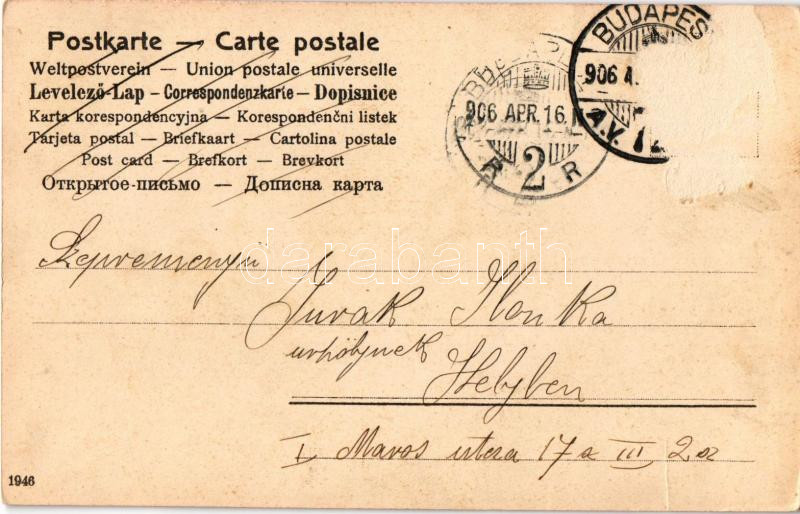 Postkarte — Carte postale
Weltpostverein — Union postale universelle
Levelező-Lap – Correspondenzkarte – Dopisnice
Karta korespondencyjna — Korespondenční listek
Tarjeta postal — Briefkaart — Cartolina postale
Post card — Brefkort — Brevkort
Открытое-письмо — Дописна карта
BUDAPEST
906 APR. 16.
R 2 R
BUDAPES
906 A.
A.V.
darabanth
Jurák Ilonka
Helyben
I. Maros utcza 17 a III, 2 a
1946